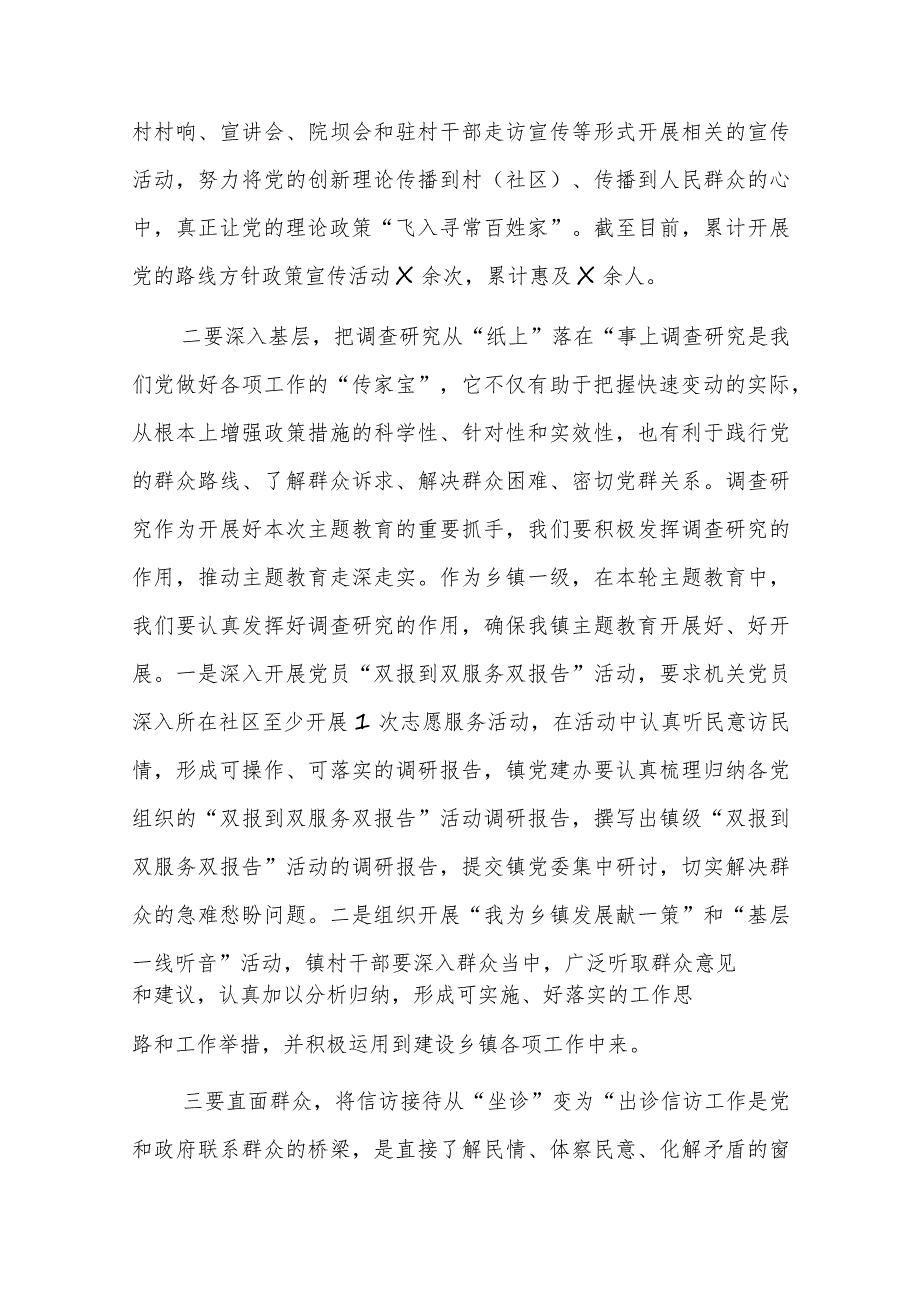 村村响、宣讲会、院坝会和驻村干部走访宣传等形式开展相关的宣传
活动，努力将党的创新理论传播到村（社区）、传播到人民群众的心
中，真正让党的理论政策“飞入寻常百姓家”。截至目前，累计开展
党的路线方针政策宣传活动X余次，累计惠及X余人。
二要深入基层，把调查研究从“纸上”落在“事上调查研究是我
们党做好各项工作的“传家宝”，它不仅有助于把握快速变动的实际，
从根本上增强政策措施的科学性、针对性和实效性，也有利于践行党
的群众路线、了解群众诉求、解决群众困难、密切党群关系。调查研
究作为开展好本次主题教育的重要抓手，我们要积极发挥调查研究的
作用，推动主题教育走深走实。作为乡镇一级，在本轮主题教育中，
我们要认真发挥好调查研究的作用，确保我镇主题教育开展好、好开
展。一是深入开展党员“双报到双服务双报告”活动，要求机关党员
深入所在社区至少开展1次志愿服务活动，在活动中认真听民意访民
情，形成可操作、可落实的调研报告，镇党建办要认真梳理归纳各党
组织的“双报到双服务双报告”活动调研报告，撰写出镇级“双报到
双服务双报告”活动的调研报告，提交镇党委集中研讨，切实解决群
众的急难愁盼问题。二是组织开展“我为乡镇发展献一策”和“基层
一线听音”活动，镇村干部要深入群众当中，广泛听取群众意见
和建议，认真加以分析归纳，形成可实施、好落实的工作思
路和工作举措，并积极运用到建设乡镇各项工作中来。
三要直面群众，将信访接待从“坐诊”变为“出诊信访工作是党
和政府联系群众的桥梁，是直接了解民情、体察民意、化解矛盾的窗